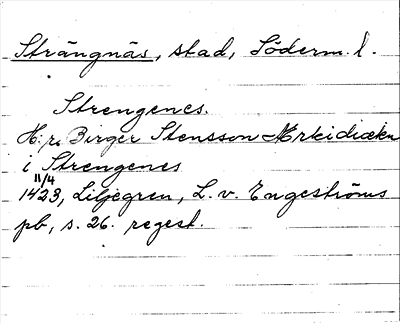 Strängnäs, stad, Söderm. l.
Strengenes.
H:r Birger Stensson Ærkidiækn
i Strengenes
11/4
1423, Liljegren, L. v. Engeströms
pb, s. 26. regest.